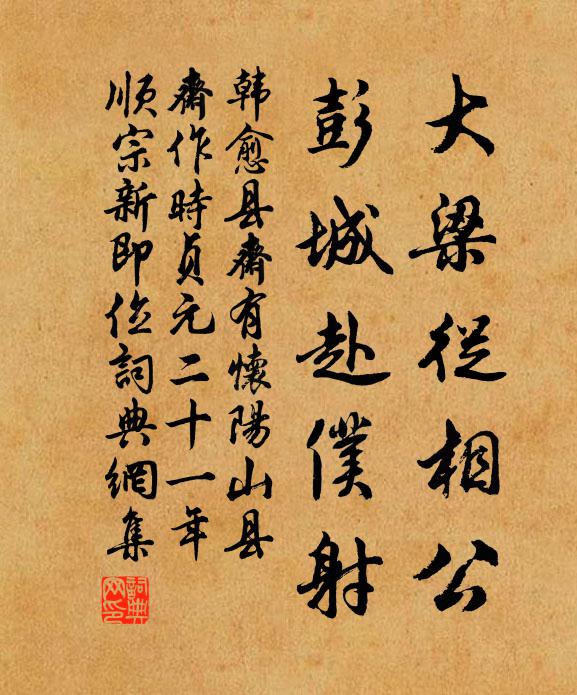 大梁從相公
彭城赴僕射
韩愈县齋有懷陽山县
齋作時貞元二十一年
順宗新即位詞典網集
詞典
网印